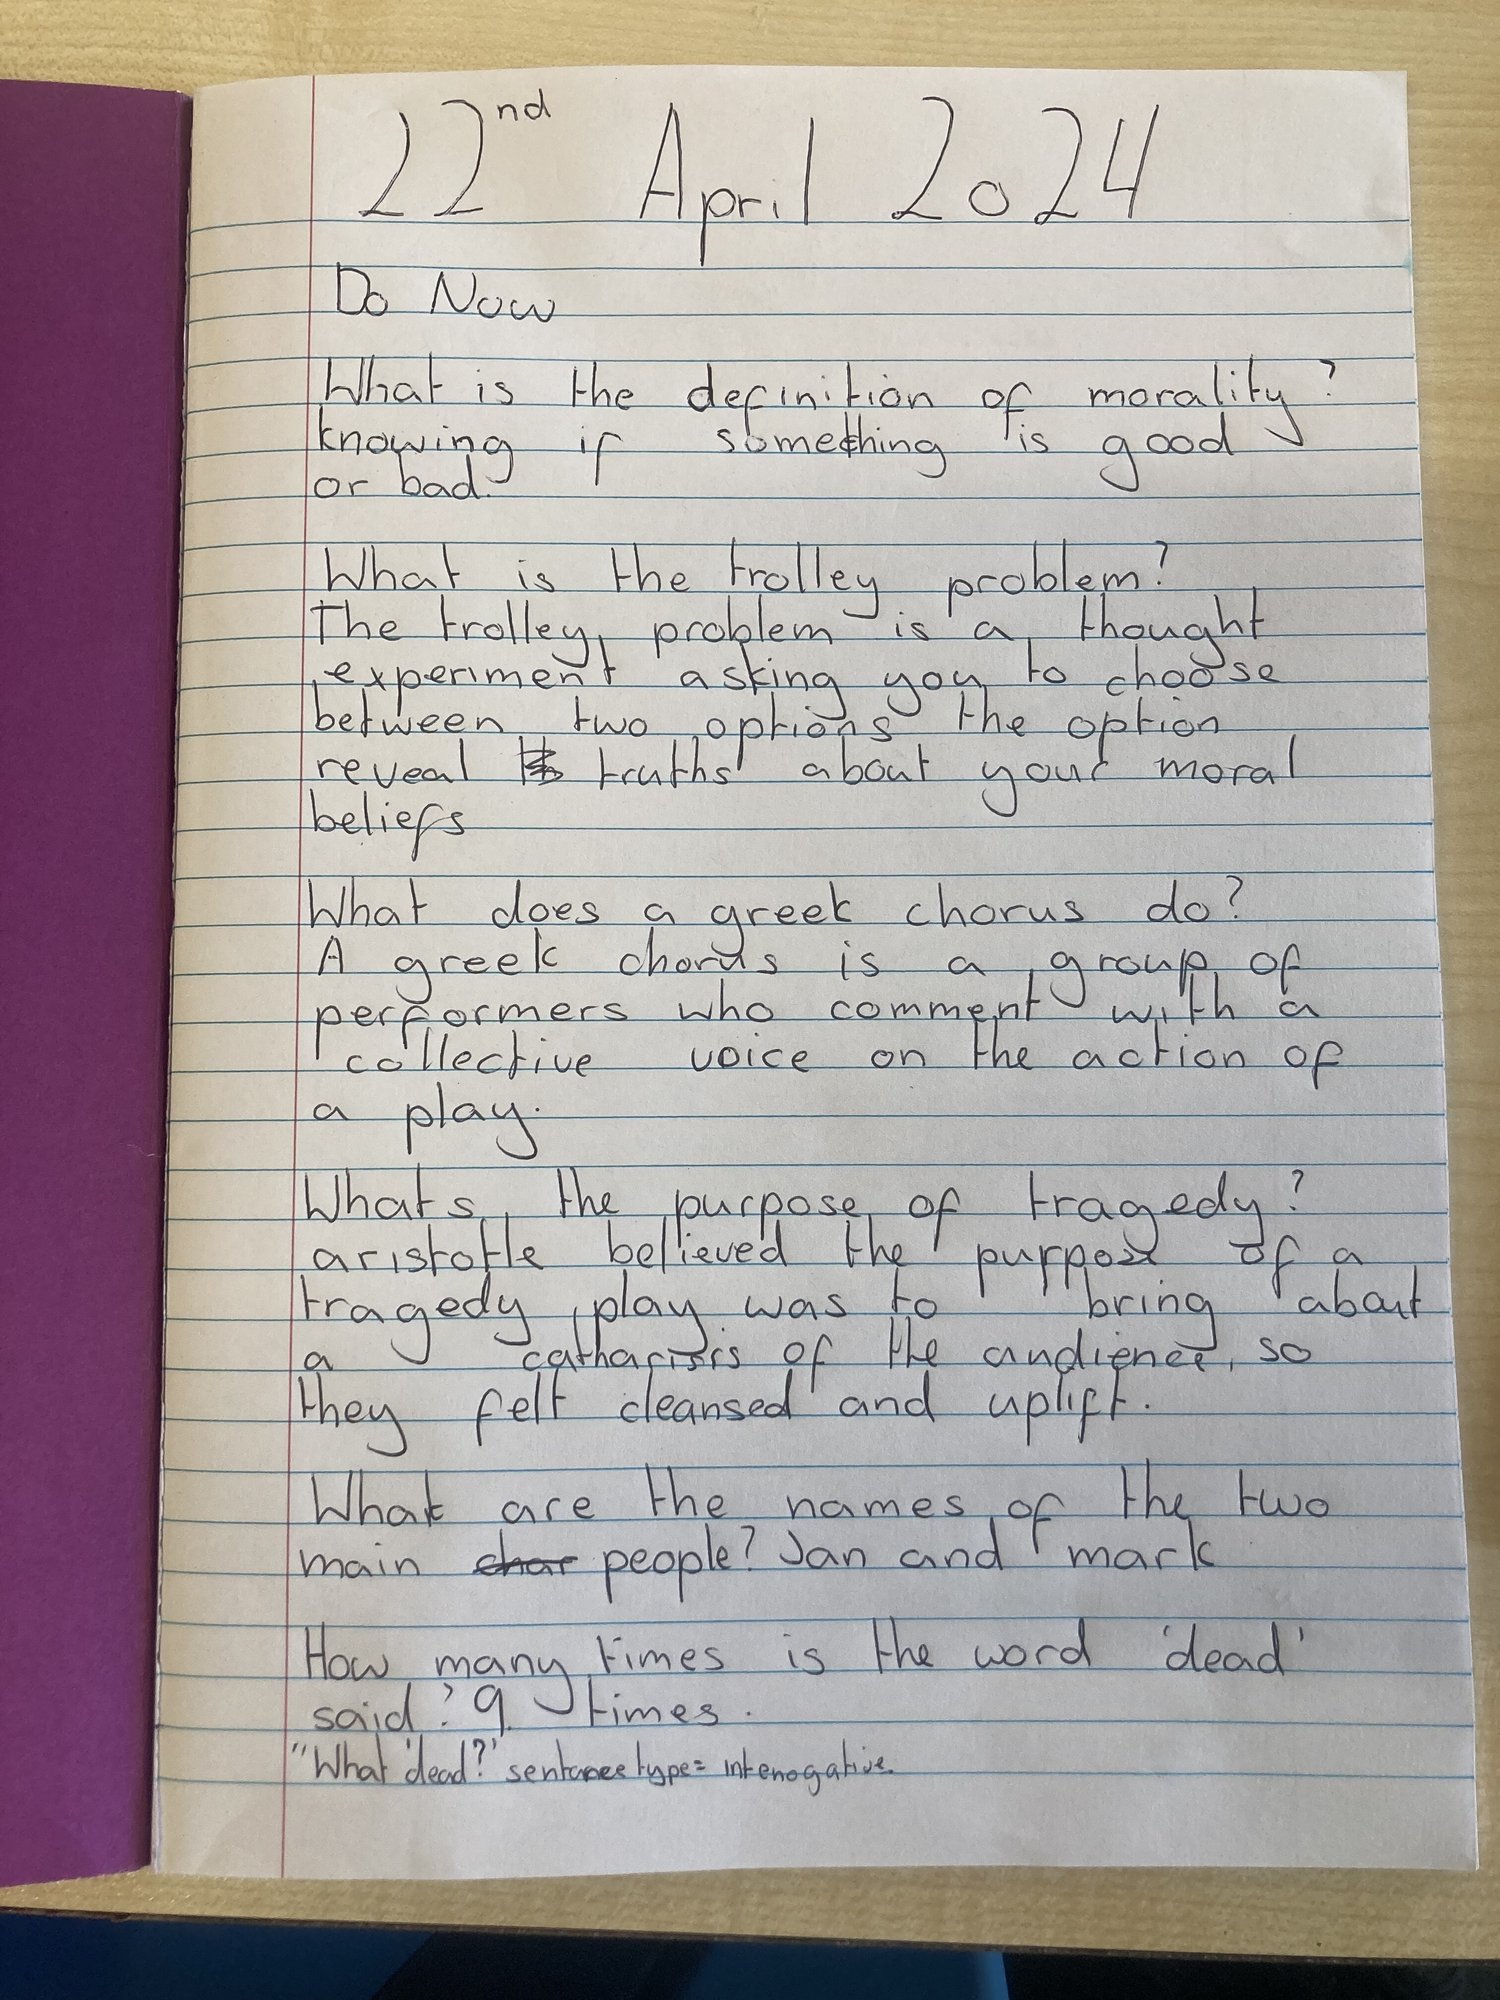 22nd April 2024
Do Now
What is the definition of morality?
knowing if something is good
or bad.
What is the trolley problem?
The trolley problem is a thought
experiment asking you to choose
between two options the option
reveal truths about your moral
beliefs
What does a greek chorus do?
A greek chorus is a group of
performers who comment with a
collective voice on the action of
a play.
Whats the purpose of tragedy?
aristotle believed the purpose of a
tragedy play was to bring about
a catharisis of the audience, so
they felt cleansed and uplift.
What are the names of the two
main char people? Jan and mark
How many times is the word 'dead'
said? 9 times.
"What 'dead?' sentance type= interrogative.